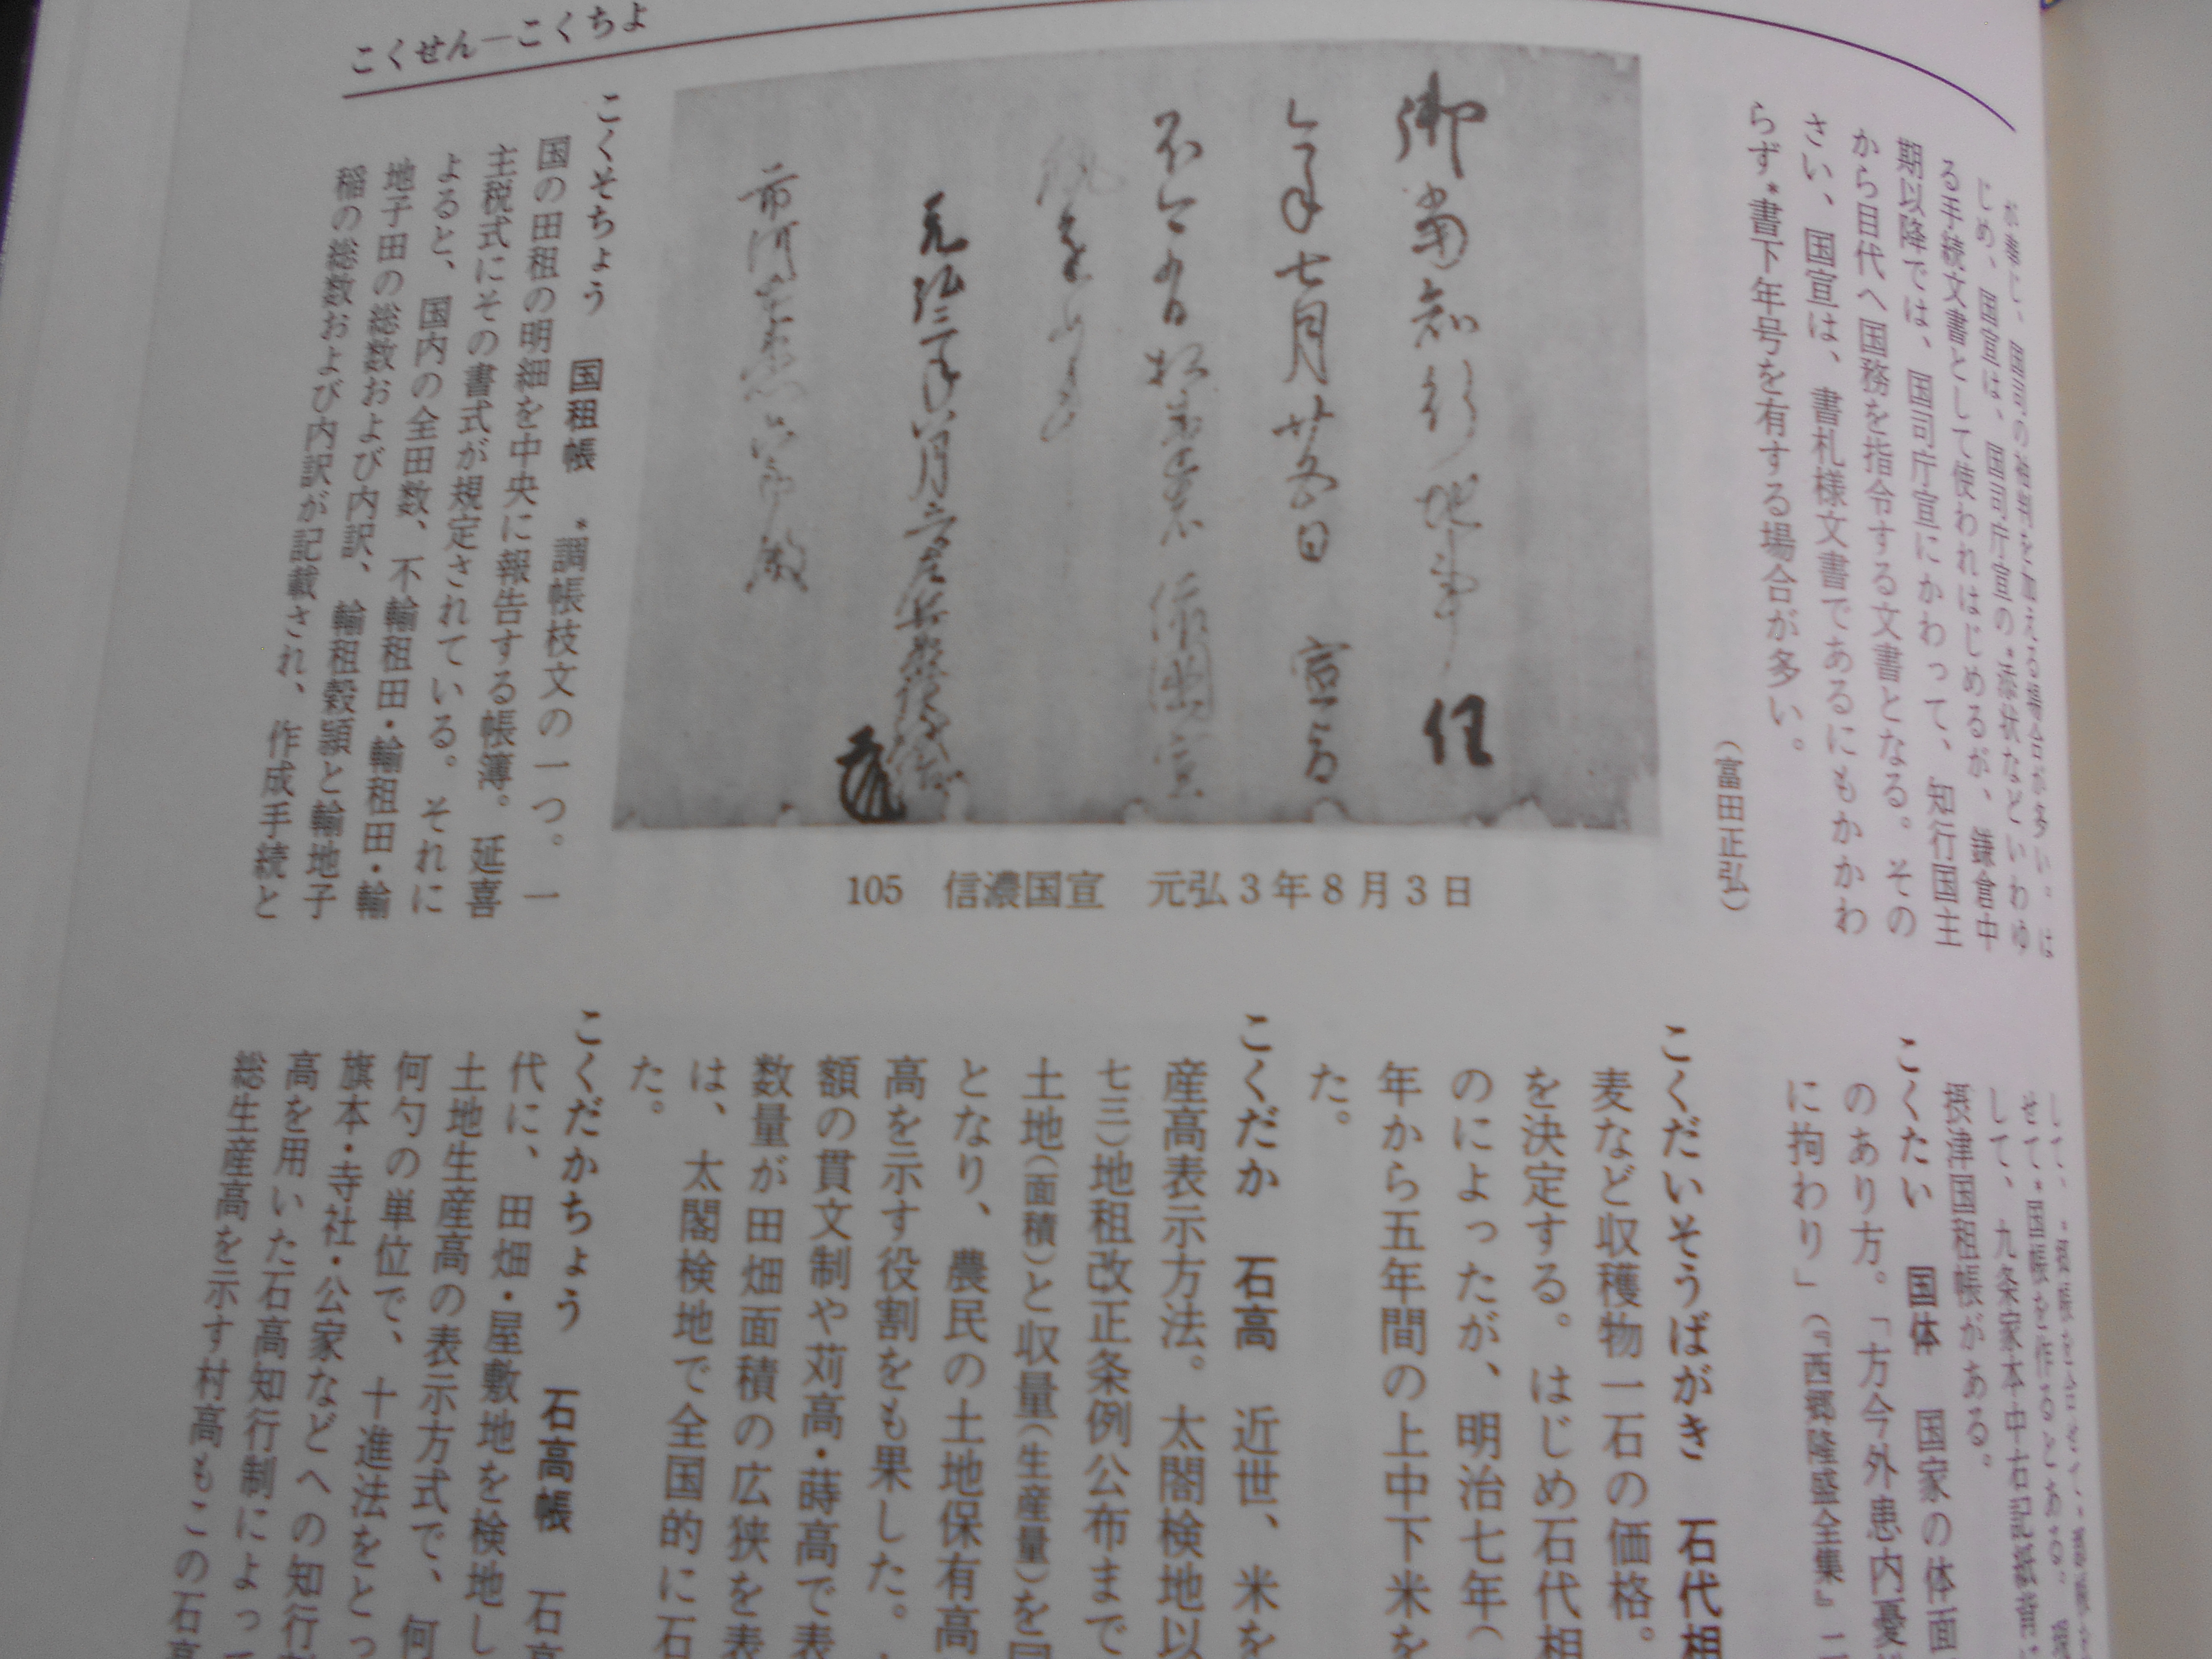 こくせん―こくちよ
じめ、国宣は、国司庁宣の*添状などといわゆ
る手続文書として使われはじめるが、鎌倉中
期以降では、国司庁宣にかわって、知行国主
から目代へ国務を指令する文書となる。その
さい、国宣は、書札様文書であるにもかかわ
らず*書下年号を有する場合が多い。
（富田正弘）
御当知行地事、任
今年七月廿五日 宣旨
不可有相違者、依国宣
執達如件
元弘三年八月三日
市河 六郎殿
105 信濃国宣 元弘3年8月3日
こくそちょう 国租帳 *調帳枝文の一つ。一
国の田租の明細を中央に報告する帳簿。延喜
主税式にその書式が規定されている。それに
よると、国内の全田数、不輸租田・輸租田・輸
地子田の総数および内訳、輸租穀穎と輸地子
稲の総数および内訳が記載され、作成手続と
せて*国帳を作るとある。
して、九条家本中右記紙背に
摂津国租帳がある。
こくたい 国体 国家の体面
のあり方。「方今外患内憂
に拘わり」（『西郷隆盛全集』二
こくだいそうばがき 石代相
麦など収穫物一石の価格。
を決定する。はじめ石代相
のによったが、明治七年（
年から五年間の上中下米を
た。
こくだか 石高 近世、米を
産高表示方法。太閤検地以
七三）地租改正条例公布まで
土地（面積）と収量（生産量）を
となり、農民の土地保有高
高を示す役割をも果した。
額の貫文制や苅高・蒔高で表
数量が田畑面積の広狭を表
は、太閤検地で全国的に石
た。
こくだかちょう 石高帳 石高
代に、田畑・屋敷地を検地し
土地生産高の表示方式で、何
何勺の単位で、十進法をとっ
旗本・寺社・公家などへの知行
高を用いた石高知行制によっ
総生産高を示す村高もこの石高